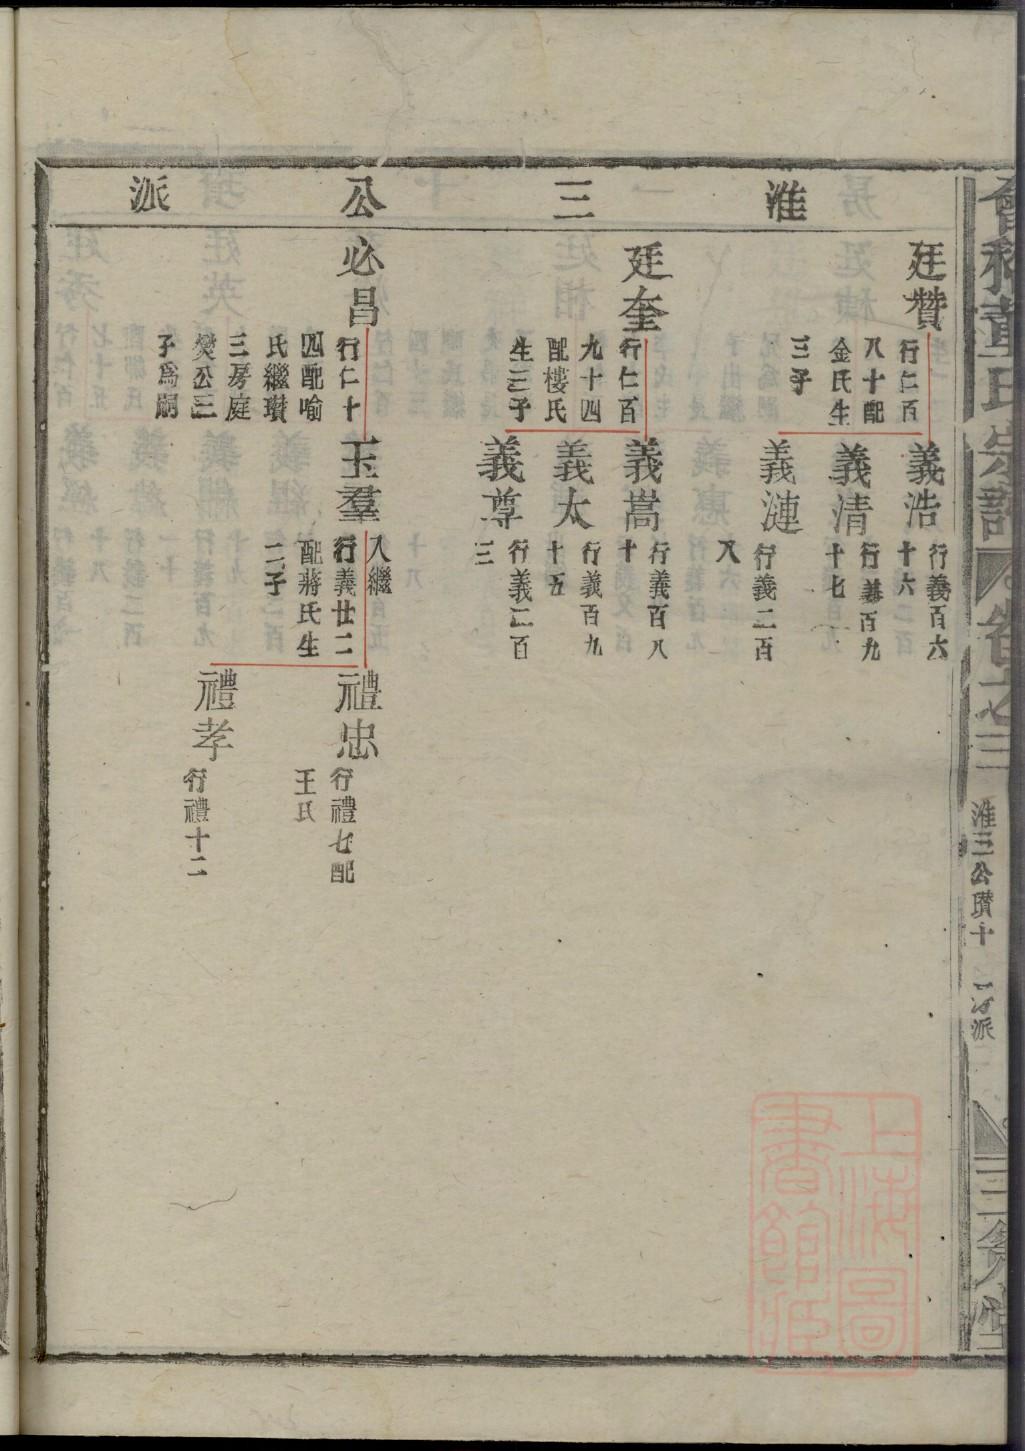 淮三公派
廷贊
行仁百
八十配
金氏生
三子
義浩
行義百六
十六
義清
行義百九
十七
義漣
行義二百
八
廷奎
行仁百
九十四
配樓氏
生三子
義嵩
行義百八
十
義太
行義百九
十五
義尊
行義二百
三
必昌
行仁十
四配喻
氏繼瓚
三房庭
燮公三
子為嗣
玉羣
入繼
行義廿二
配蔣氏生
二子
禮忠
行禮七配
王氏
禮孝
行禮十二
宗譜
卷之三
淮三公瓚十
派
上海圖
書館藏